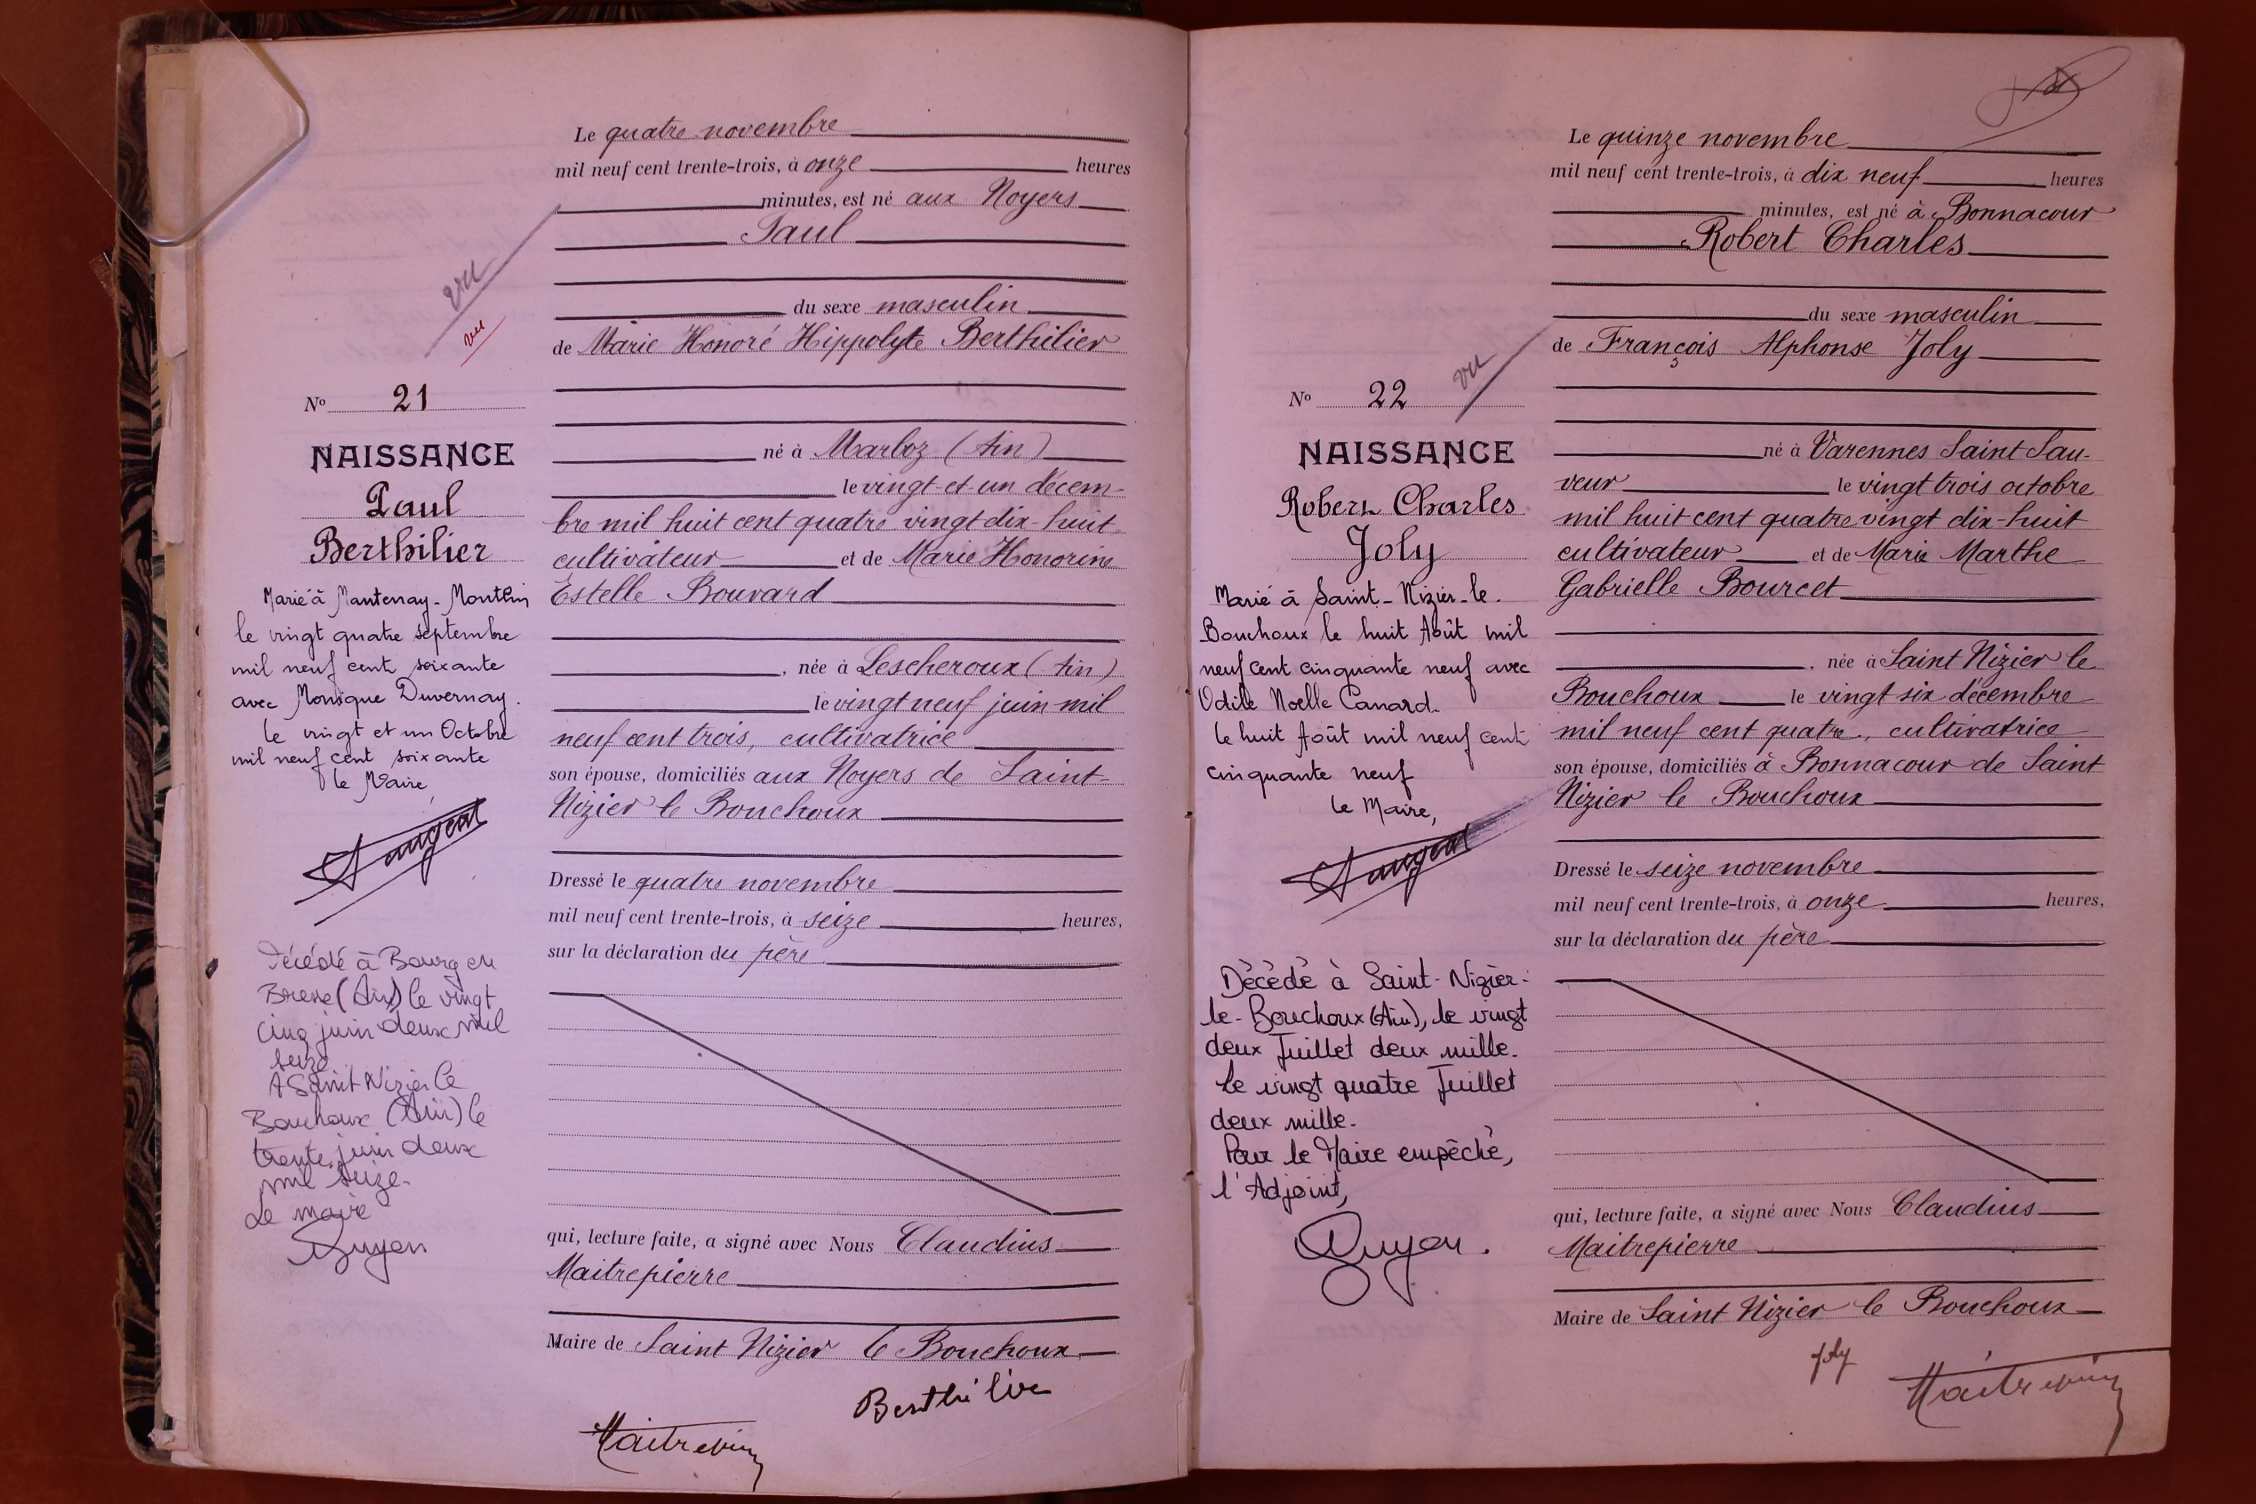 Le quatre novembre
mil neuf cent trente-trois, à onze heures
minutes, est né aux Noyers
Paul
du sexe masculin
de Marie Honoré Hippolyte Berthilier
né à Marboz (Ain)
le vingt et un décem-
bre mil huit cent quatre vingt dix-huit
cultivateur et de Marie Honorine
Estelle Bouvard
, née à Lescheroux (Ain)
le vingt neuf juin mil
neuf cent trois, cultivatrice
son épouse, domiciliés aux Noyers de Saint-
Nizier le Bouchoux
Dressé le quatre novembre
mil neuf cent trente-trois, à seize heures,
sur la déclaration du père
qui, lecture faite, a signé avec Nous Claudius
Maitrepierre
Maire de Saint Nizier le Bouchoux
Berthilier
vu
vu
No 21
NAISSANCE
Paul
Berthilier
Marié à Mantenay-Montlin
le vingt quatre septembre
mil neuf cent soixante
avec Monique Duvernay.
le vingt et un Octobre
mil neuf cent soixante
le Maire,
Décédé à Bourg en
Bresse (Ain) le vingt
cinq juin deux mil
seize
A Saint Nizier le
Bouchoux (Ain) le
trente juin deux
mil seize.
Le maire
Guyon
Le quinze novembre
mil neuf cent trente-trois, à dix neuf heures
minutes, est né à Bonnacour
Robert Charles
du sexe masculin
de François Alphonse Joly
né à Varennes Saint Sau-
veur le vingt trois octobre
mil huit cent quatre vingt dix-huit
cultivateur et de Marie Marthe
Gabrielle Bourcet
, née à Saint Nizier le
Bouchoux le vingt six décembre
mil neuf cent quatre, cultivatrice
son épouse, domiciliés à Bonnacour de Saint
Nizier le Bouchoux
Dressé le seize novembre
mil neuf cent trente-trois, à onze heures,
sur la déclaration du père
qui, lecture faite, a signé avec Nous Claudius
Maitrepierre
Maire de Saint Nizier le Bouchoux
Joly
vu
No 22
NAISSANCE
Robert Charles
Joly
Marié à Saint-Nizier-le-
Bouchoux le huit Août mil
neuf cent cinquante neuf avec
Odile Noelle Canard.
le huit Août mil neuf cent
cinquante neuf
le Maire,
Décédé à Saint-Nizier-
le-Bouchoux (Ain), le vingt
deux Juillet deux mille.
Le vingt quatre Juillet
deux mille.
Pour le Maire empêché,
l'Adjoint,
Guyon.